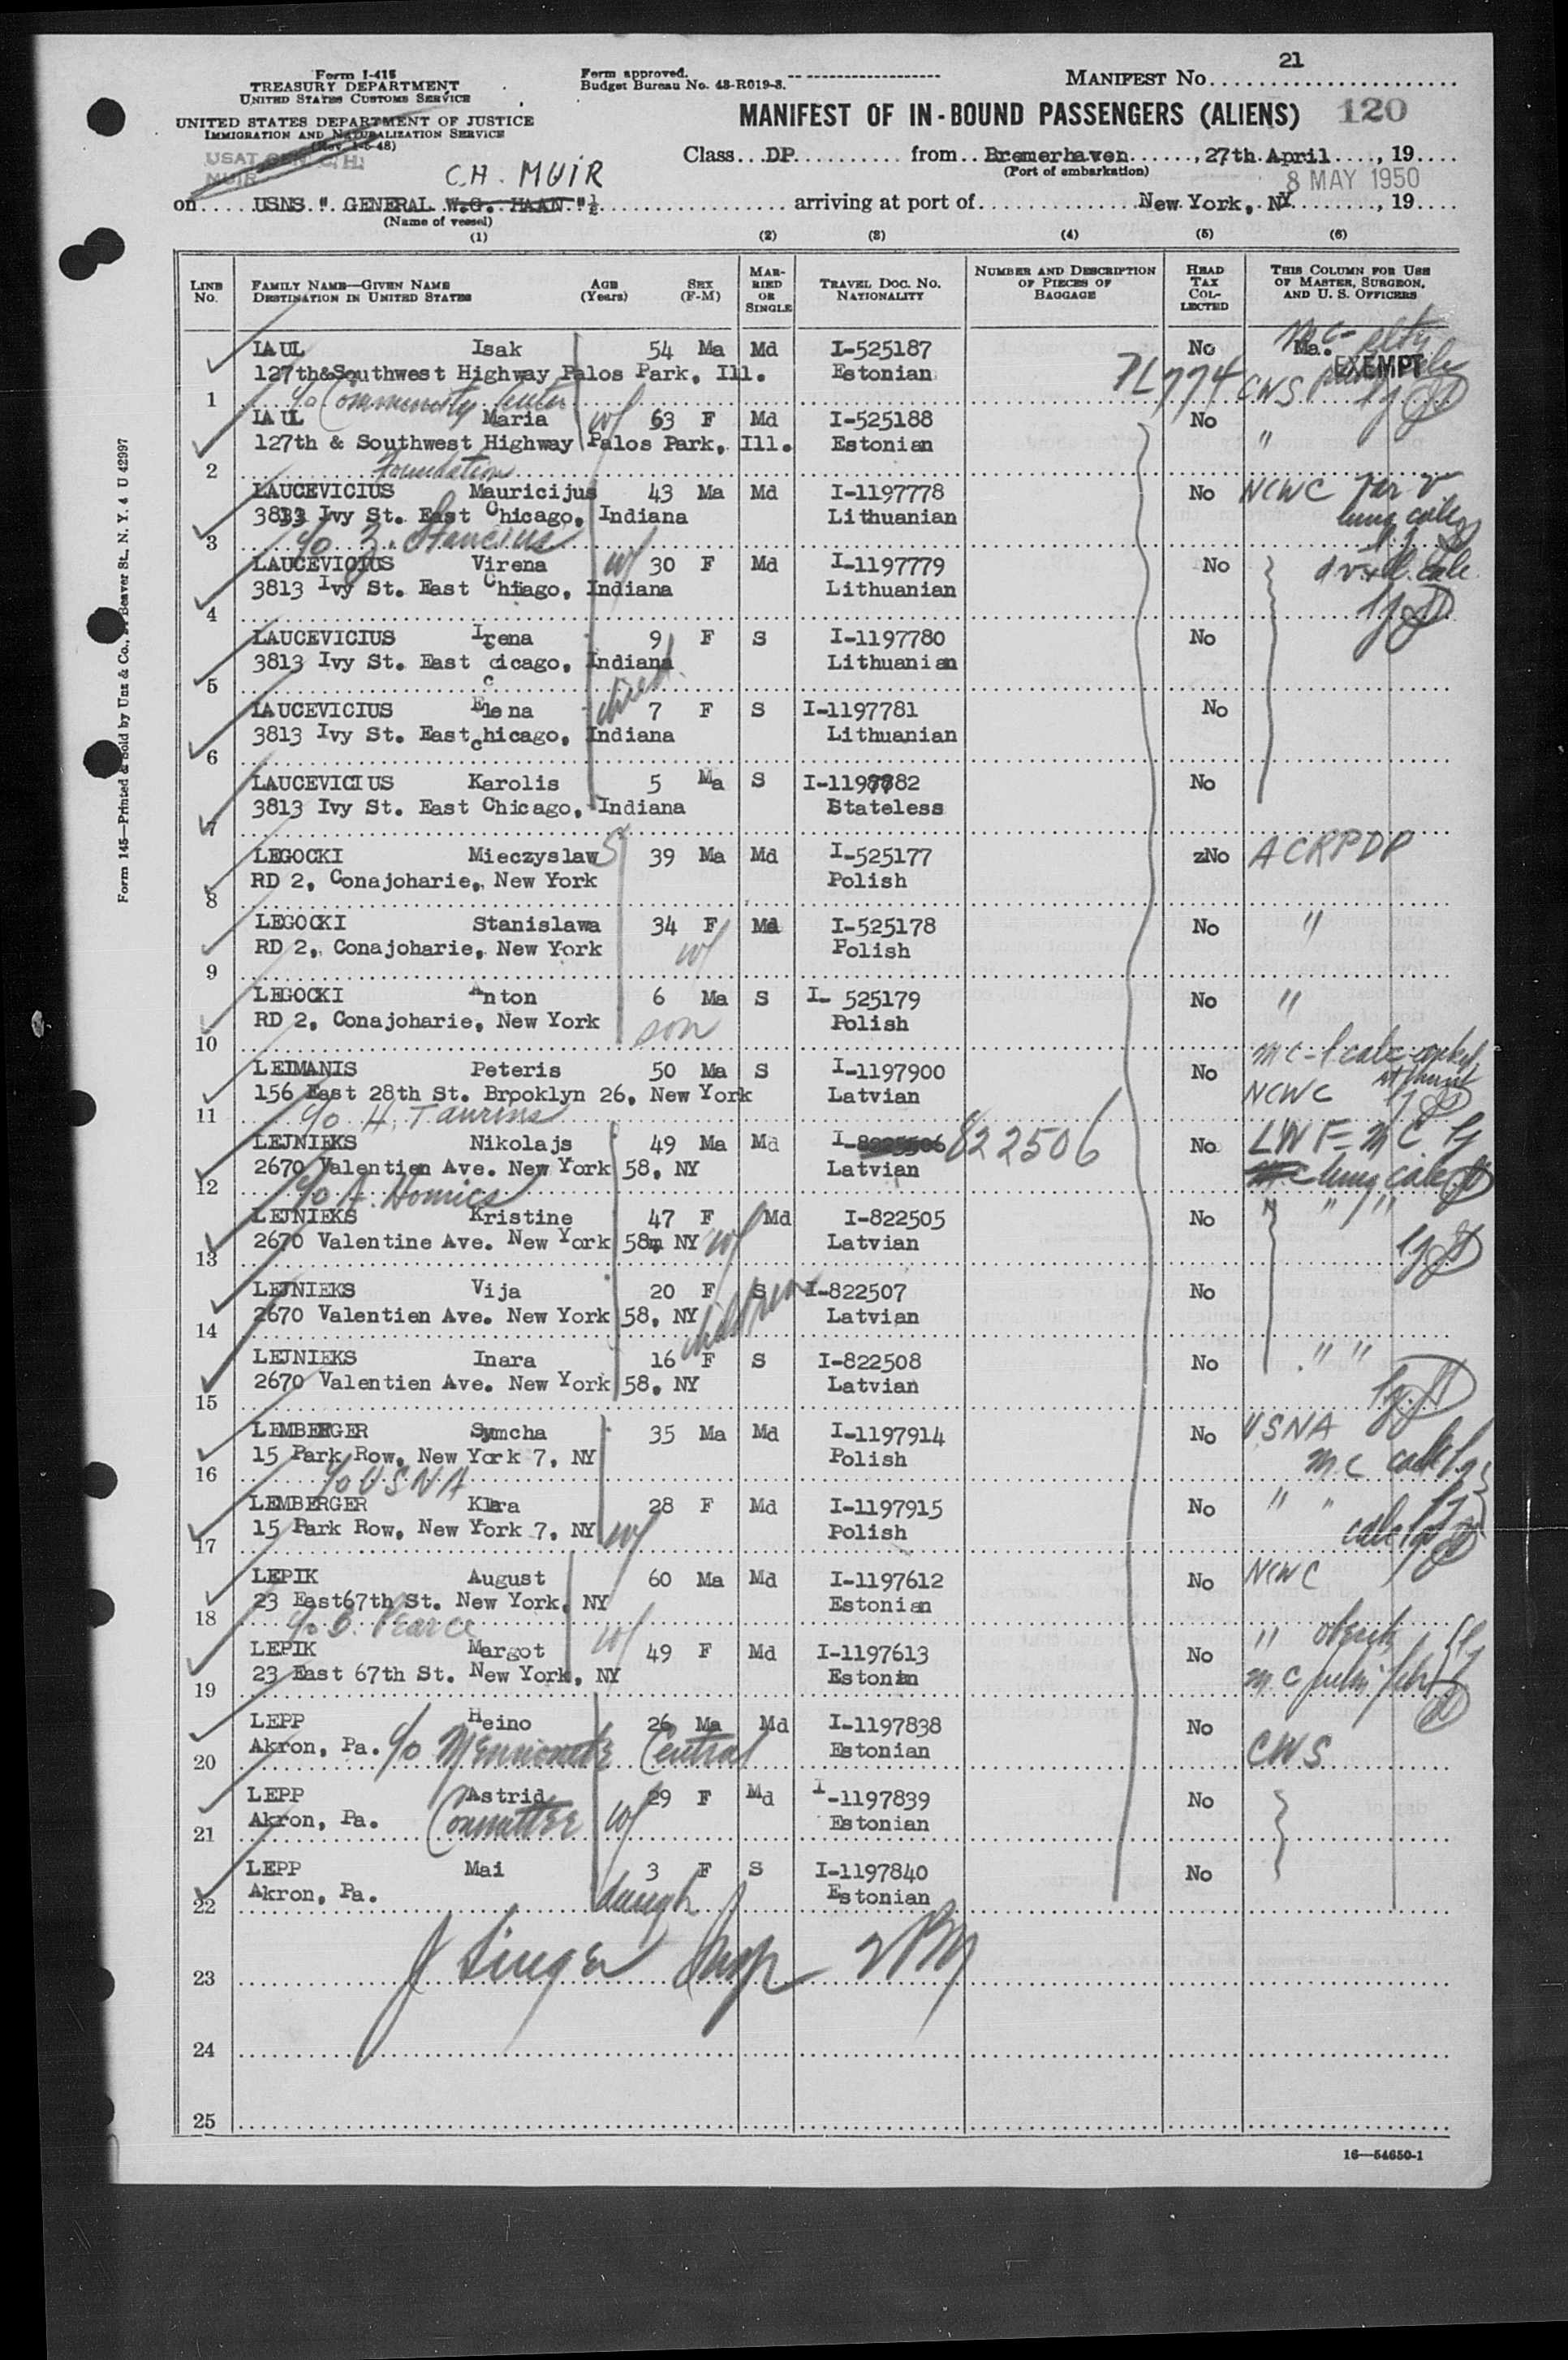 Form I-415
TREASURY DEPARTMENT
UNITED STATES CUSTOMS SERVICE
UNITED STATES DEPARTMENT OF JUSTICE
IMMIGRATION AND NATURALIZATION SERVICE
(Rev. 1-5-48)
Form approved.
Budget Bureau No. 43-R019-3.
21
MANIFEST No.
MANIFEST OF IN-BOUND PASSENGERS (ALIENS) 120
USAT GEN C. H.
MUIR
Class DP from Bremerhaven, 27th April, 19
(Port of embarkation)
C.H. MUIR
8 MAY 1950
on USNS " GENERAL W.G. HAAN " arriving at port of New York, NY, 19
(Name of vessel)
(1) (2) (3) (4) (5) (6)
LINE No. FAMILY NAME—GIVEN NAME DESTINATION IN UNITED STATES AGE (Years) SEX (F-M) MARRIED OR SINGLE TRAVEL DOC. NO. NATIONALITY NUMBER AND DESCRIPTION OF PIECES OF BAGGAGE HEAD TAX COLLECTED THIS COLUMN FOR USE OF MASTER, SURGEON, AND U. S. OFFICERS
LAUL Isak 54 Ma Md I-525187 No Ma.
127th&Southwest Highway Palos Park, Ill. Estonian 7L774 CWS EXEMPT
1 c/o Community Center
LAUL Maria w/ 63 F Md I-525188 No
127th & Southwest Highway Palos Park, Ill. Estonian "
2 Foundation
LAUCEVICIUS Mauricijus 43 Ma Md I-1197778 No NCWC
3813 Ivy St. East Chicago, Indiana Lithuanian lung calc
3 c/o Z. Stancius
LAUCEVICIUS Virena w/ 30 F Md I-1197779 No
3813 Ivy St. East Chiiago, Indiana Lithuanian
4
LAUCEVICIUS Irena 9 F S I-1197780 No
3813 Ivy St. East cicago, Indiana Lithuanian
5
LAUCEVICIUS Elena 7 F S I-1197781 No
3813 Ivy St. East chicago, Indiana Lithuanian
6
LAUCEVICIUS Karolis 5 Ma S I-1197782 No
3813 Ivy St. East Chicago, Indiana Stateless
7
LEGOCKI Mieczyslaw 39 Ma Md I-525177 zNo ACRPDP
RD 2, Conajoharie, New York Polish
8
LEGOCKI Stanislawa 34 F Md I-525178 No "
RD 2, Conajoharie, New York w/ Polish
9
LEGOCKI Anton 6 Ma S I- 525179 No "
RD 2, Conajoharie, New York son Polish
10
LEIMANIS Peteris 50 Ma S I-1197900 No
156 East 28th St. Brooklyn 26, New York Latvian NCWC
11 c/o H. Taurins
LEJNIEKS Nikolajs 49 Ma Md I-8225506 822506 No LWF
2670 Valentien Ave. New York 58, NY Latvian lung calc
12 c/o A. Homics
LEJNIEKS Kristine 47 F Md I-822505 No " " "
2670 Valentine Ave. New York 58m NY w/ Latvian
13
LEJNIEKS Vija 20 F S I-822507 No
2670 Valentien Ave. New York 58, NY children Latvian
14
LEJNIEKS Inara 16 F S I-822508 No " "
2670 Valentien Ave. New York 58, NY Latvian
15
LEMBERGER Symcha 35 Ma Md I-1197914 No USNA
15 Park Row, New York 7, NY Polish
16 c/o USNA
LEMBERGER Klara 28 F Md I-1197915 No " "
15 Park Row, New York 7, NY w/ Polish
17
LEPIK August 60 Ma Md I-1197612 No NCWC
23 East67th St. New York, NY Estonian
18 c/o B. Pearce
LEPIK Margot w/ 49 F Md I-1197613 No "
23 East 67th St. New York, NY Estonian
19
LEPP Heino 26 Ma Md I-1197838 No
Akron, Pa. c/o Mennonite Central Estonian CWS
20
LEPP Astrid 29 F Md I-1197839 No
Akron, Pa. Committee w/ Estonian
21
LEPP Mai 3 F S I-1197840 No
Akron, Pa. daugh Estonian
22
J Singer Insp
23
24
25
16—54650-1
Form 145—Printed & Sold by Unz & Co., Beaver St., N. Y. 4 U 42997